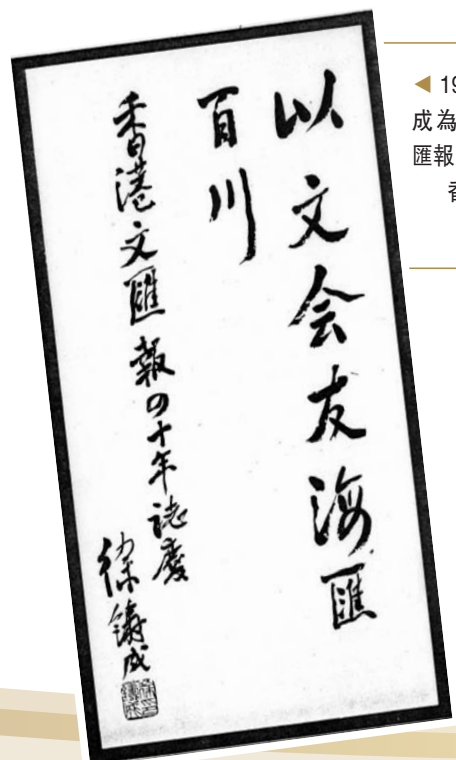 以文会友海匯
百川
香港文匯報四十年誌慶
徐鑄成
◀ 19
成為
匯報
香